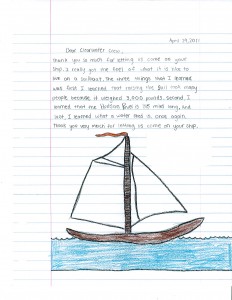 April 29, 2011
Dear Clearwater Sloop,
thank you so much for letting us come on your
ship. It really got one feel of what it is like to
live on a sailboat. The three things that I learned
was first I learned that raising the sail took many
people because it weighed 3,000 pounds. Second, I
learned that the Hudson River is 315 miles long, and
last, I learned what a water shed is. Once again,
thank you very much for letting us come on your ship.